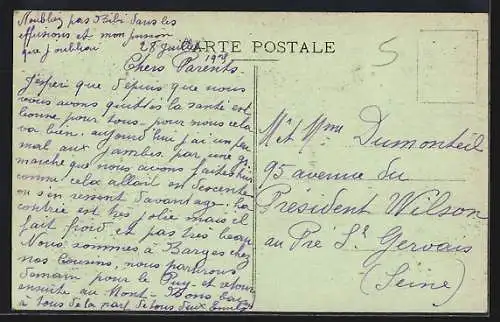 N'oubliez pas Bibi dans les
effusions et mon
que j'oubliais
28 juillet
CARTE POSTALE
Chers Parents
J'espère que depuis que nous
vous avons quittés la santé est
bonne pour tous. pour nous cela
va bien. aujourd'hui j'ai un peu
mal aux jambes. par une
marche que nous avons faites hier
comme cela allait en descente
on s'en ressent davantage. la
contrée est très jolie mais il
fait froid et pas très beau
Nous sommes à Barges chez
nos cousins, nous partirons
demain pour le Puy et retour
ensuite au Mont. Bons baisers
à tous de la part de tous deux
Mr et Mme Dumonteil
95 avenue du
Président Wilson
au Pré St Gervais
(Seine)
5